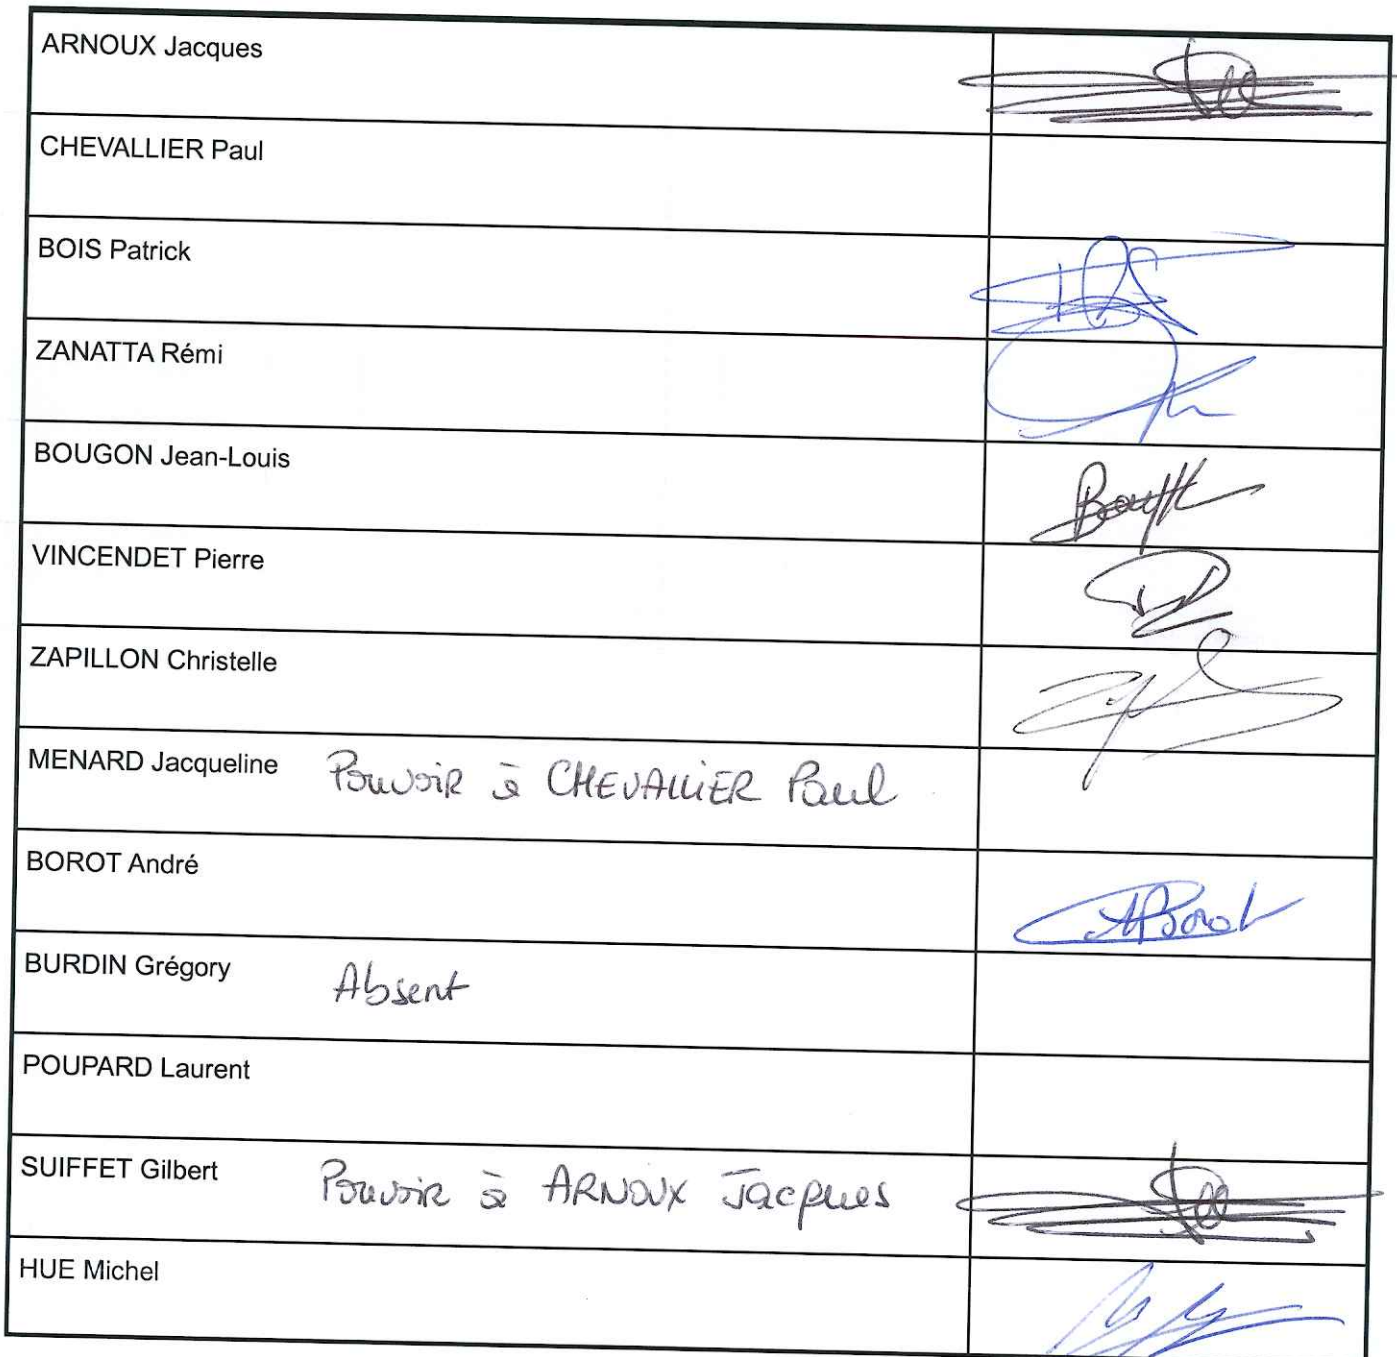 ARNOUX Jacques
CHEVALLIER Paul
BOIS Patrick
ZANATTA Rémi
BOUGON Jean-Louis
VINCENDET Pierre
ZAPILLON Christelle
MENARD Jacqueline Pouvoir à CHEVALLIER Paul
BOROT André
ABorot
BURDIN Grégory Absent
POUPARD Laurent
SUIFFET Gilbert Pouvoir à ARNOUX Jacques
HUE Michel